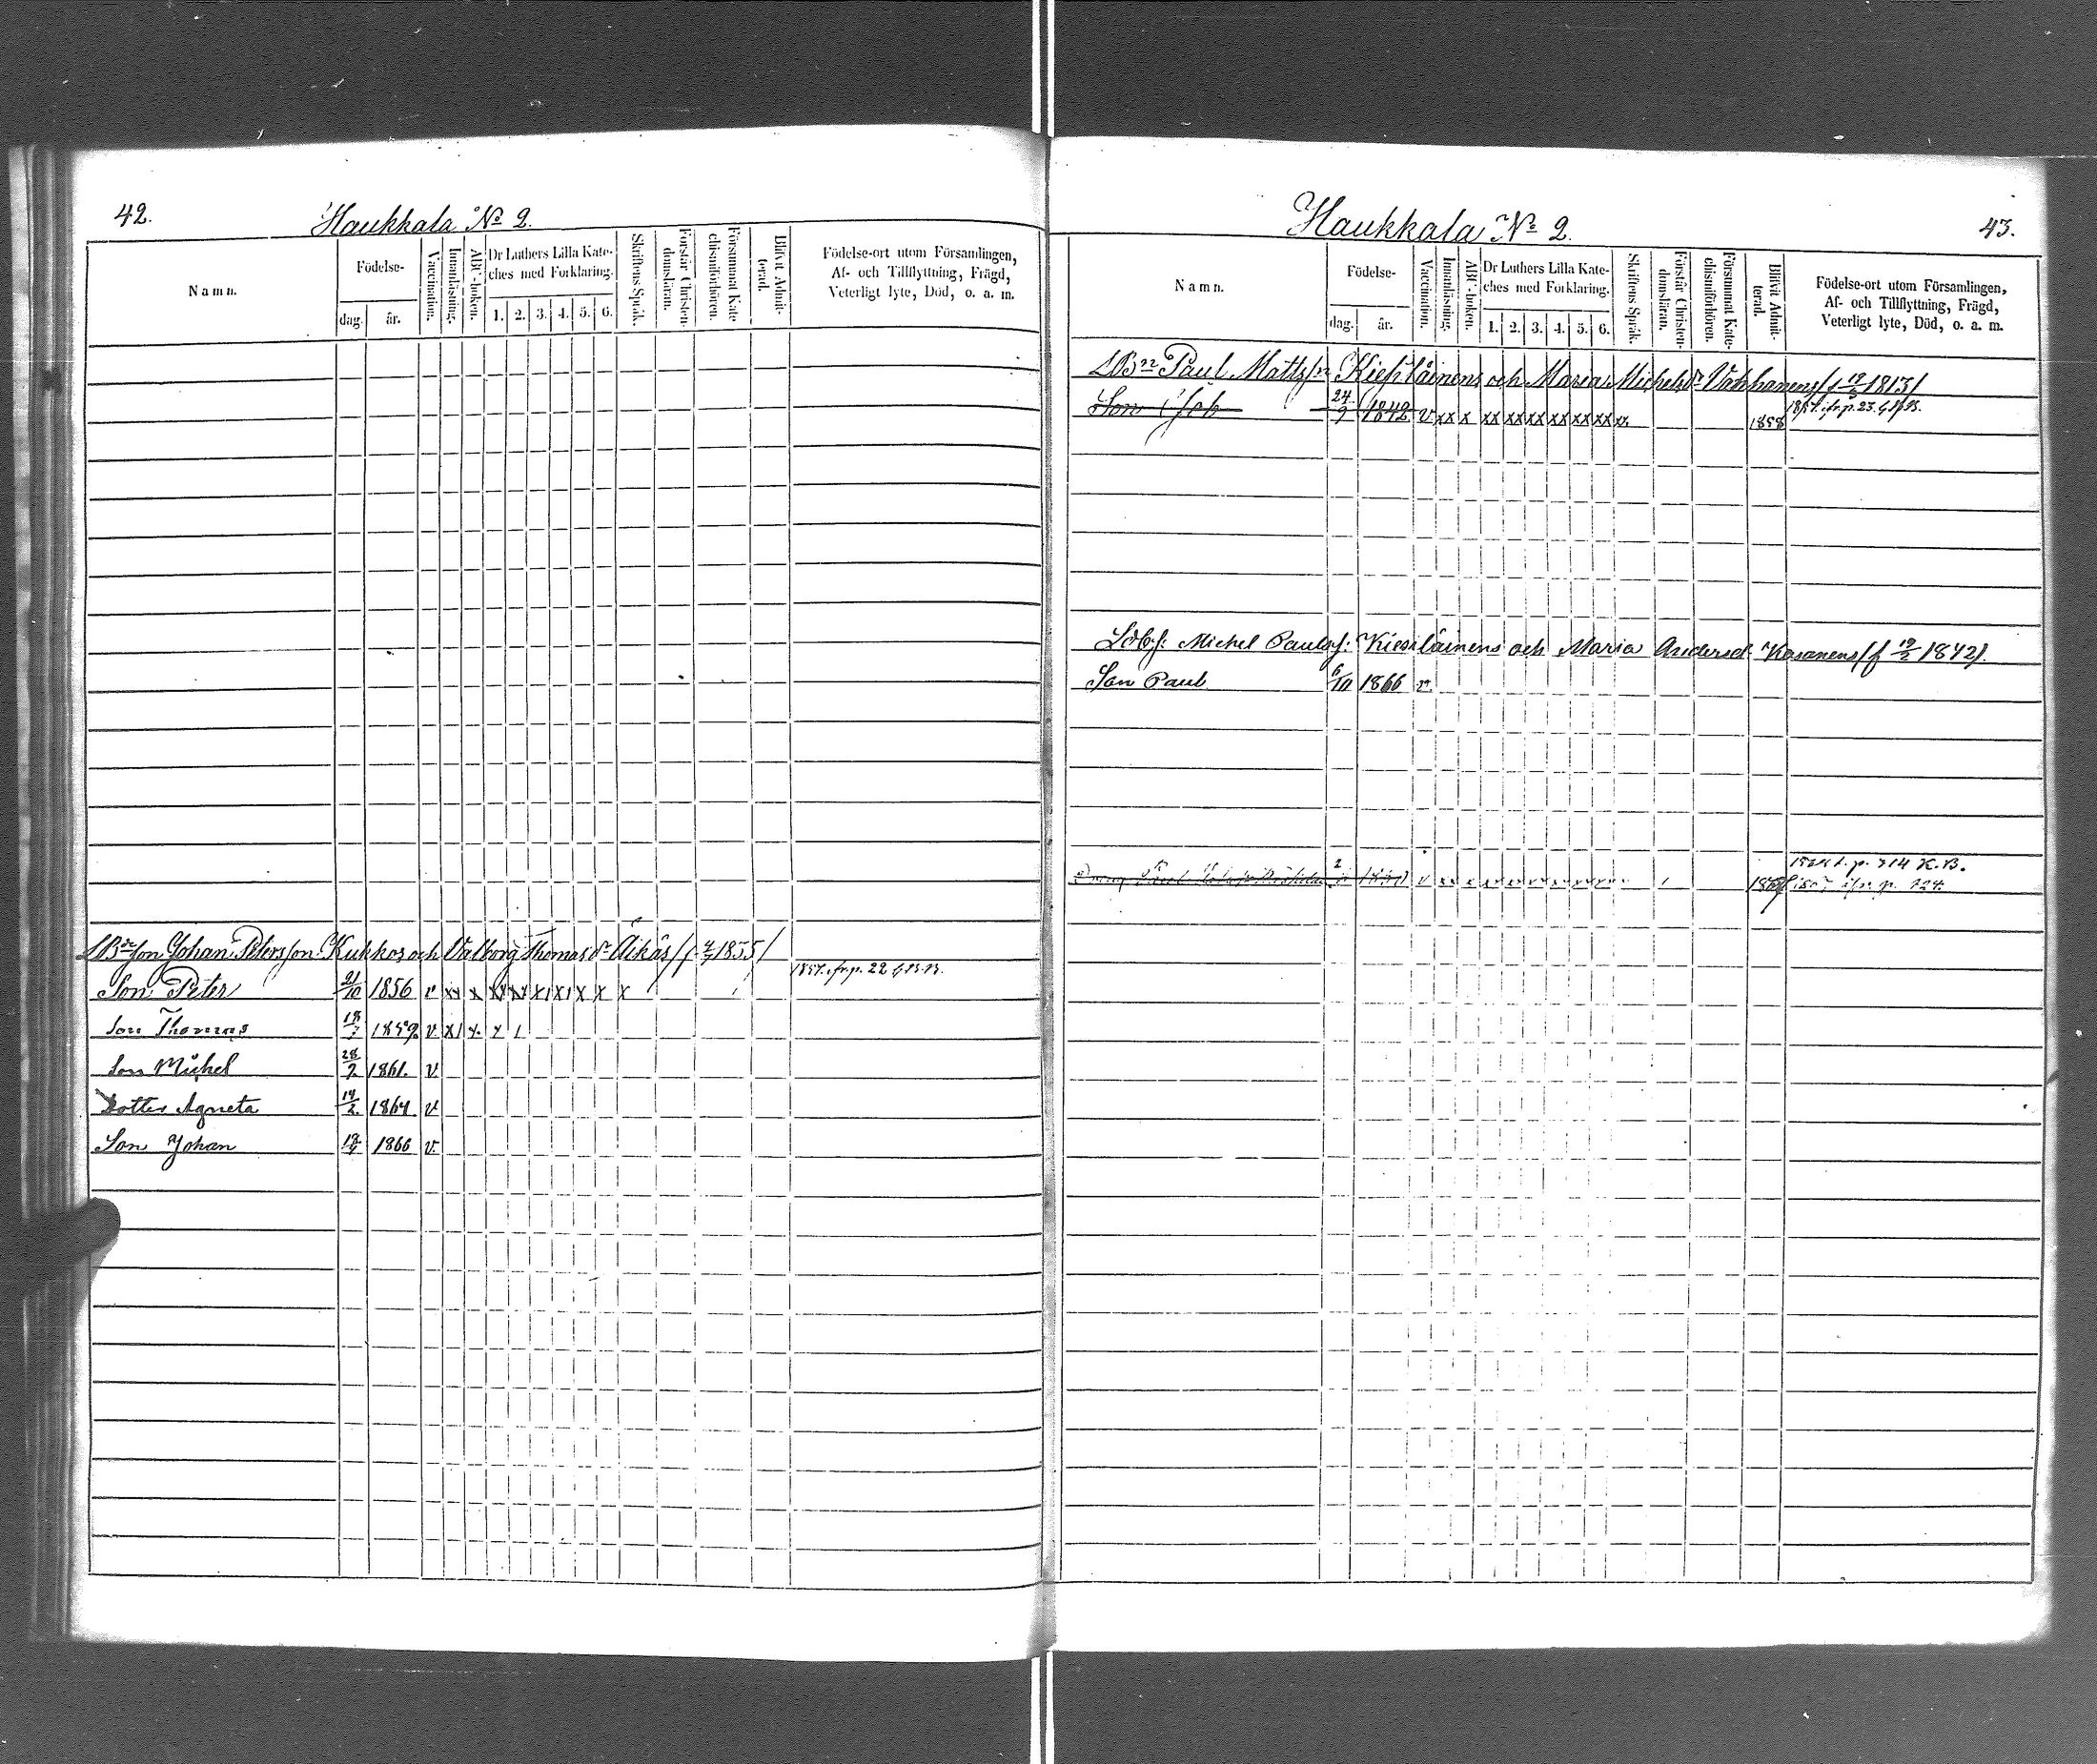 42.
Haukkala No 2.
Namn.
Födelse-
dag. år.
Vaccination.
Innanläsning.
ABC-boken.
Dr Luthers Lilla Kate-
ches med Forklaring.
1. 2. 3. 4. 5. 6.
Skriftens Språk.
Förstår Christen-
domsläran.
Försummat Kate-
chismiförhören.
Blifvit Admit-
terad.
Födelse-ort utom Församlingen,
Af- och Tillflyttning, Frägd,
Veterligt lyte, Död, o. a. m.
LBdeson Johan Petersson Kukkos och Valborg Thomasdr Äikäs /f. 4/7 1855/
1857. ifr. p. 22 G.B.B.
Son Peter 21/10 1856 v xx x xx xx xi xi x x x
Son Thomas 18/7 1859 v xi x x i
Son Michel 28/7 1861. v
Dotter Agneta 14/2 1864 v
Son Johan 18/4 1866 v
Haukkala No 2.
43.
Namn.
Födelse-
dag. år.
Vaccination.
Innanläsning.
ABC-boken.
Dr Luthers Lilla Kate-
ches med Forklaring.
1. 2. 3. 4. 5. 6.
Skriftens Språk.
Förstår Christen-
domsläran.
Försummat Kate-
chismiförhören.
Blifvit Admit-
terad.
Födelse-ort utom Församlingen,
Af- och Tillflyttning, Frägd,
Veterligt lyte, Död, o. a. m.
LBn Paul Mattss:n Kiesiläinens och Maria Michelsdr Vahhanens /f 19/5 1813/
Son Job 24/9 1842 v xx x xx xx xx xx xx xx x 1858 1857. ifr. p. 23. G.B.B.
Ldbf: Michel Paulsf: Kiesiläinens och Maria Andersd Kosanens /f 19/2 1842/.
Son Paul 6/10 1866 v
p. 314 K.B.
Dräng Paul ifr. p. 124.